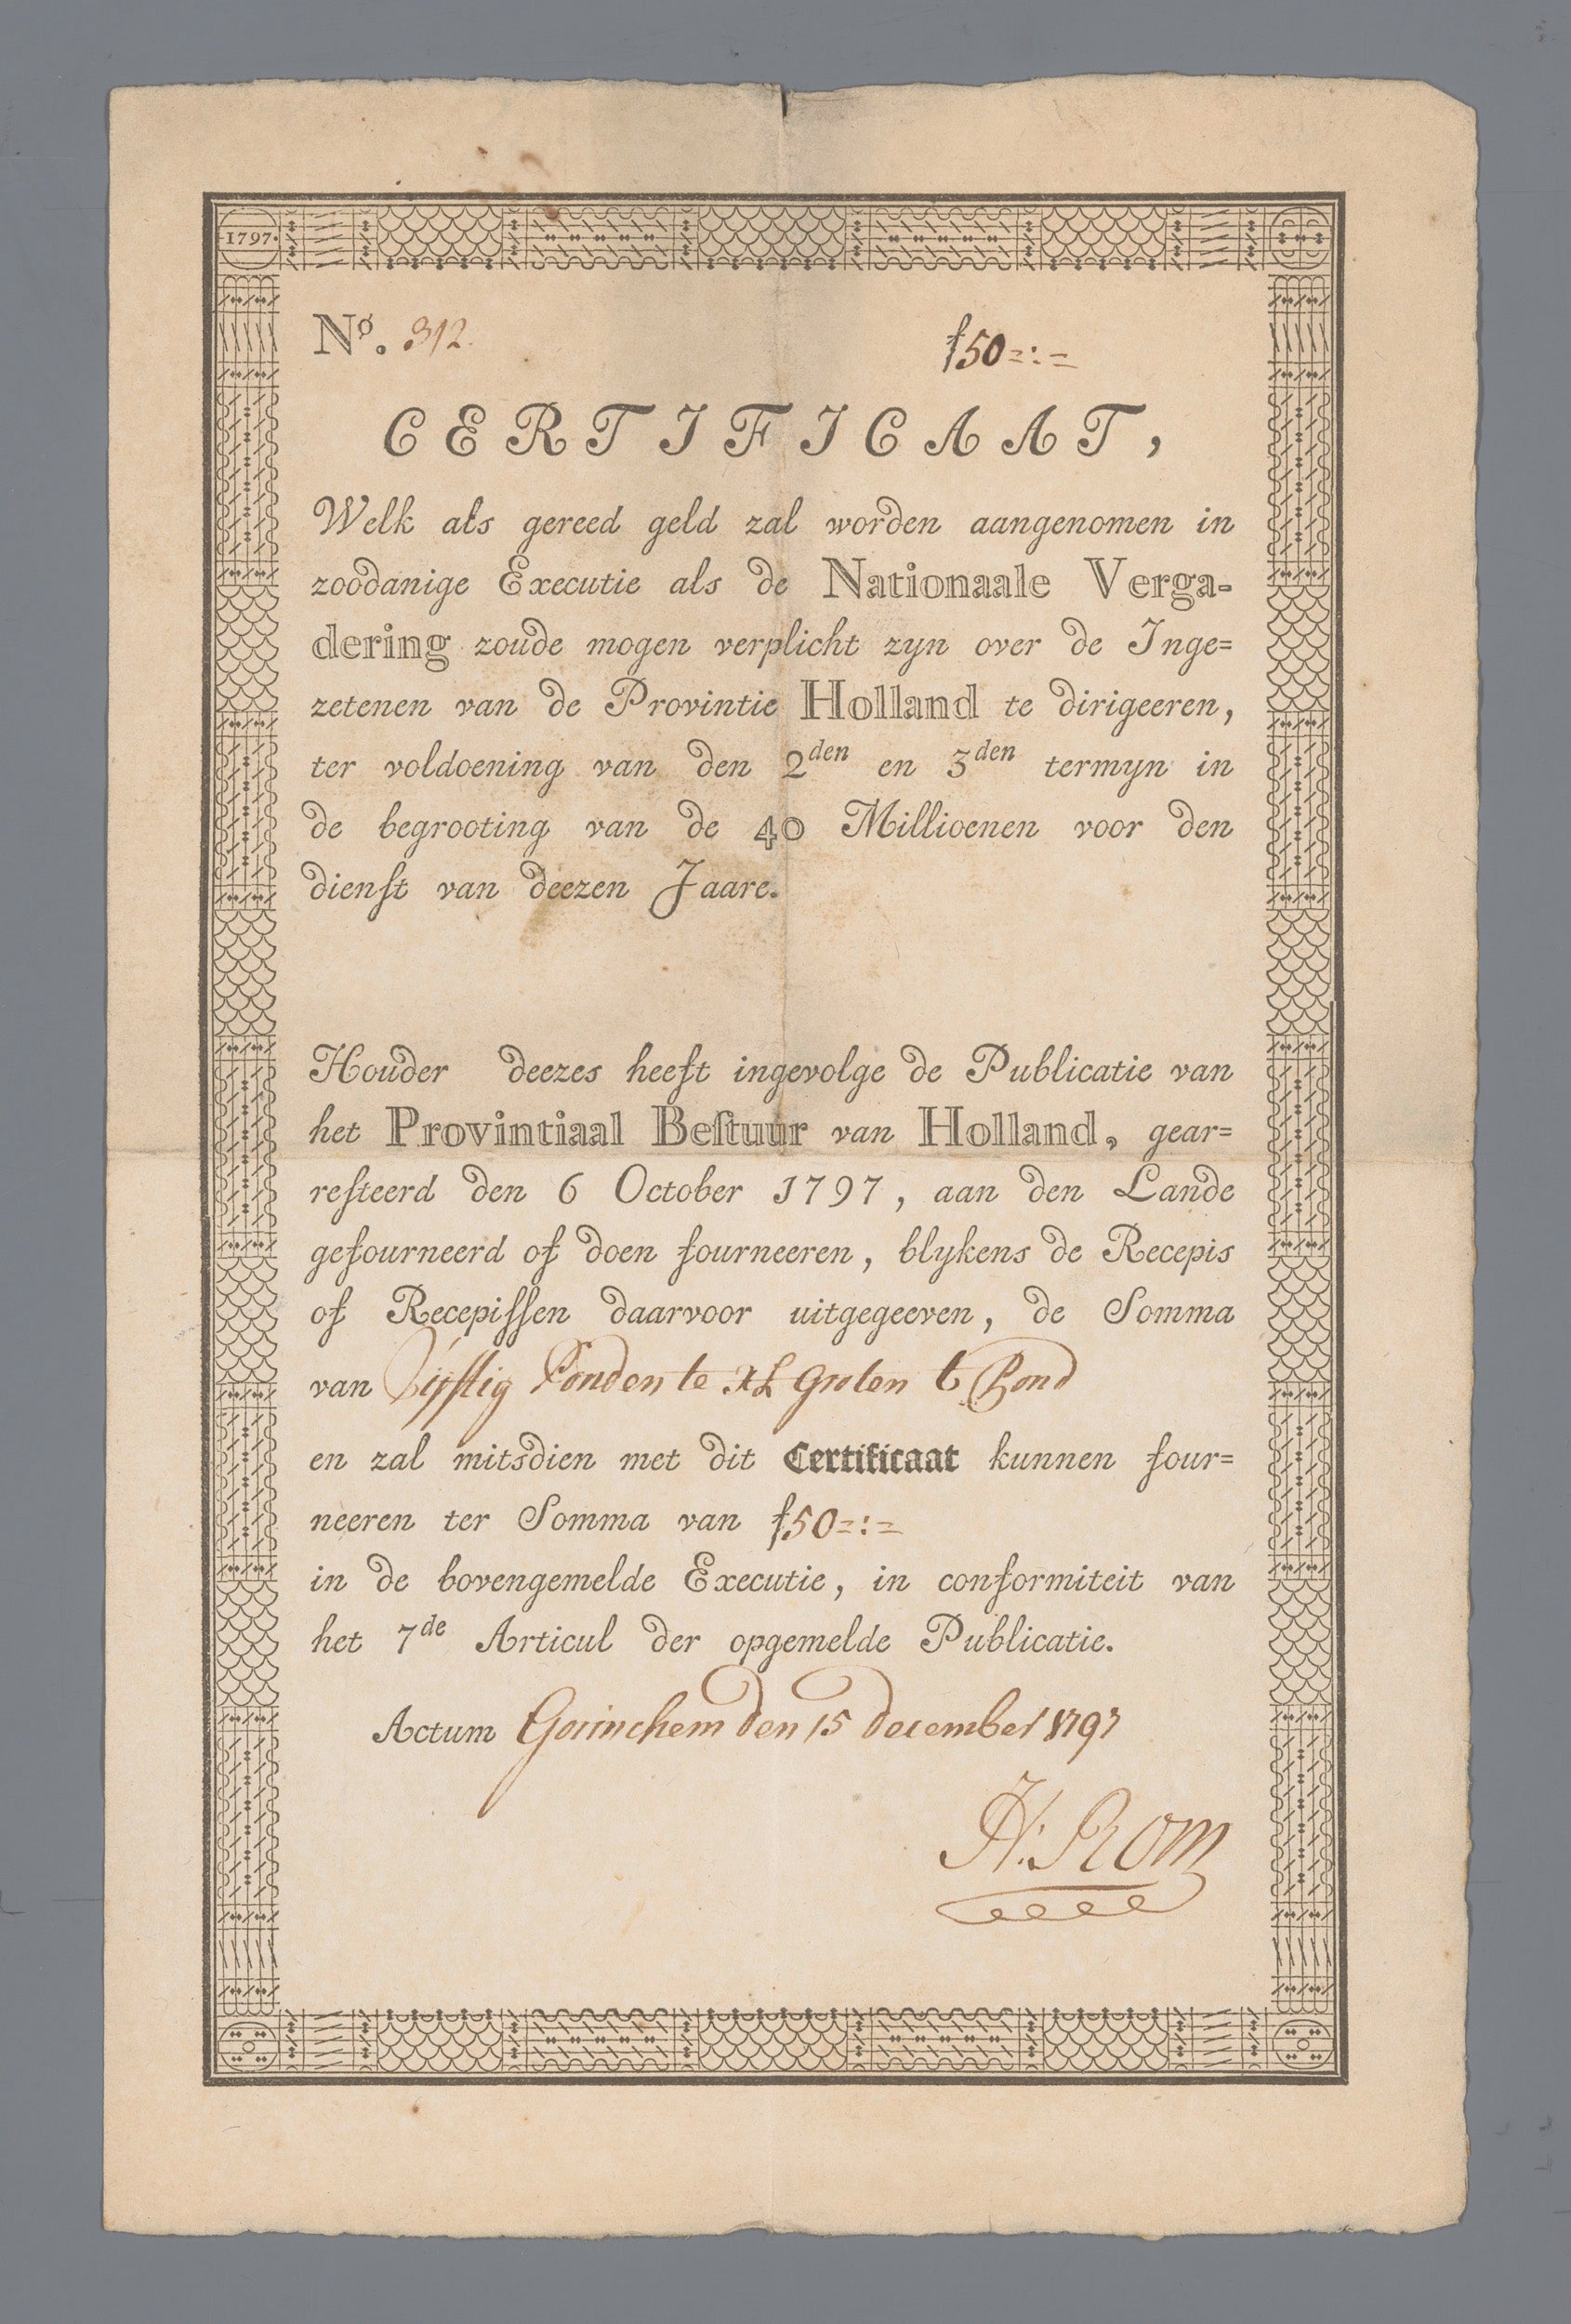 1797.
Nº. 312.
ƒ50=:=
CERTIFICAAT,
Welk als gereed geld zal worden aangenomen in
zoodanige Executie als de Nationaale Verga-
dering zoude mogen verplicht zyn over de Inge=
zetenen van de Provintie Holland te dirigeeren,
ter voldoening van den 2den en 3den termyn in
de begrooting van de 40 Millioenen voor den
dienſt van deezen Jaare.
Houder deezes heeft ingevolge de Publicatie van
het Provintiaal Beſtuur van Holland, gear=
reſteerd den 6 October 1797, aan den Lande
gefourneerd of doen fourneeren, blykens de Recepis
of Recepiſſen daarvoor uitgegeeven, de Somma
van Vijftig Ponden te XL Groten t Pond
en zal mitsdien met dit Certificaat kunnen four=
neeren ter Somma van ƒ50=:=
in de bovengemelde Executie, in conformiteit van
het 7de Articul der opgemelde Publicatie.
Actum Gorinchem den 15 december 1797
H. Rom